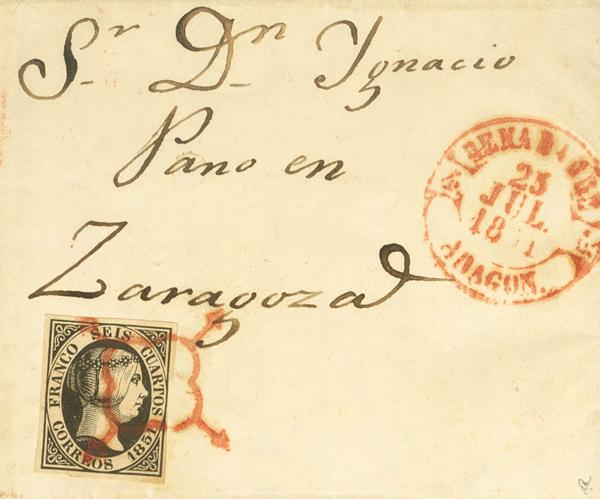 Sr Dn Ignacio
Pano en
Zaragoza
BENABARRE
23
JUL.
ARAGON.
FRANCO SEIS CUARTOS
CORREOS 1851